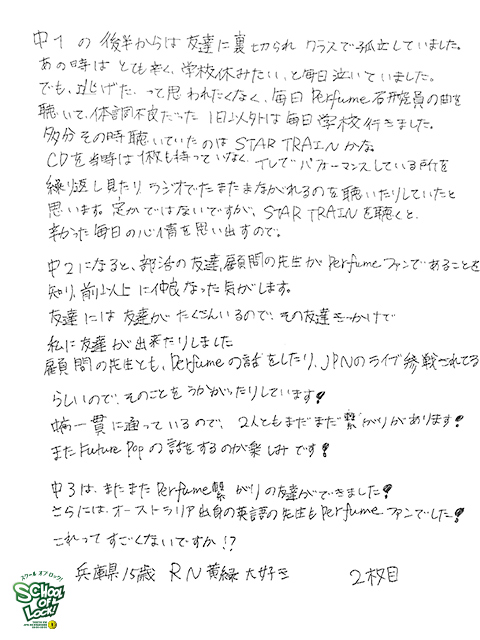 中1の後半からは友達に裏切られ クラスで孤立していました。
あの時は とても辛く、学校休みたい、と毎日泣いていました。
でも、逃げた、って思われたくなく、毎日Perfume研究員の曲を
聴いて、体調不良だった1日以外は毎日学校行きました。
多分その時聴いていたのは STAR TRAINかな。
CDを当時は1枚も持っていなく、テレビでパフォーマンスしている所を
繰り返し見たり ラジオでたまたまながれるのを聴いたりしていたと
思います。定かではないですが、STAR TRAINを聴くと、
辛かった毎日の心情を思い出すので。
中2になると、部活の友達、顧問の先生がPerfumeファンであることを
知り、前以上に仲良なった気がします。
友達には友達がたくさんいるので、その友達きっかけで
私に友達が出来たりしました
顧問の先生とも、Perfumeの話をしたり、JPNのライブ参戦されてる
らしいので、そのことをうかがったりしています!
中高一貫に通っているので、2人ともまだまだ繋がりがあります!
またFuture Popの話をするのが楽しみです!
中3は、またまたPerfume繋がりの友達ができました!
さらには、オーストラリア出身の英語の先生もPerfumeファンでした!
これってすごくないですか!?
兵庫県15歳 RN 黄緑大好き 2枚目
スクールオブロック!
SCHOOL
OF
LOCK!